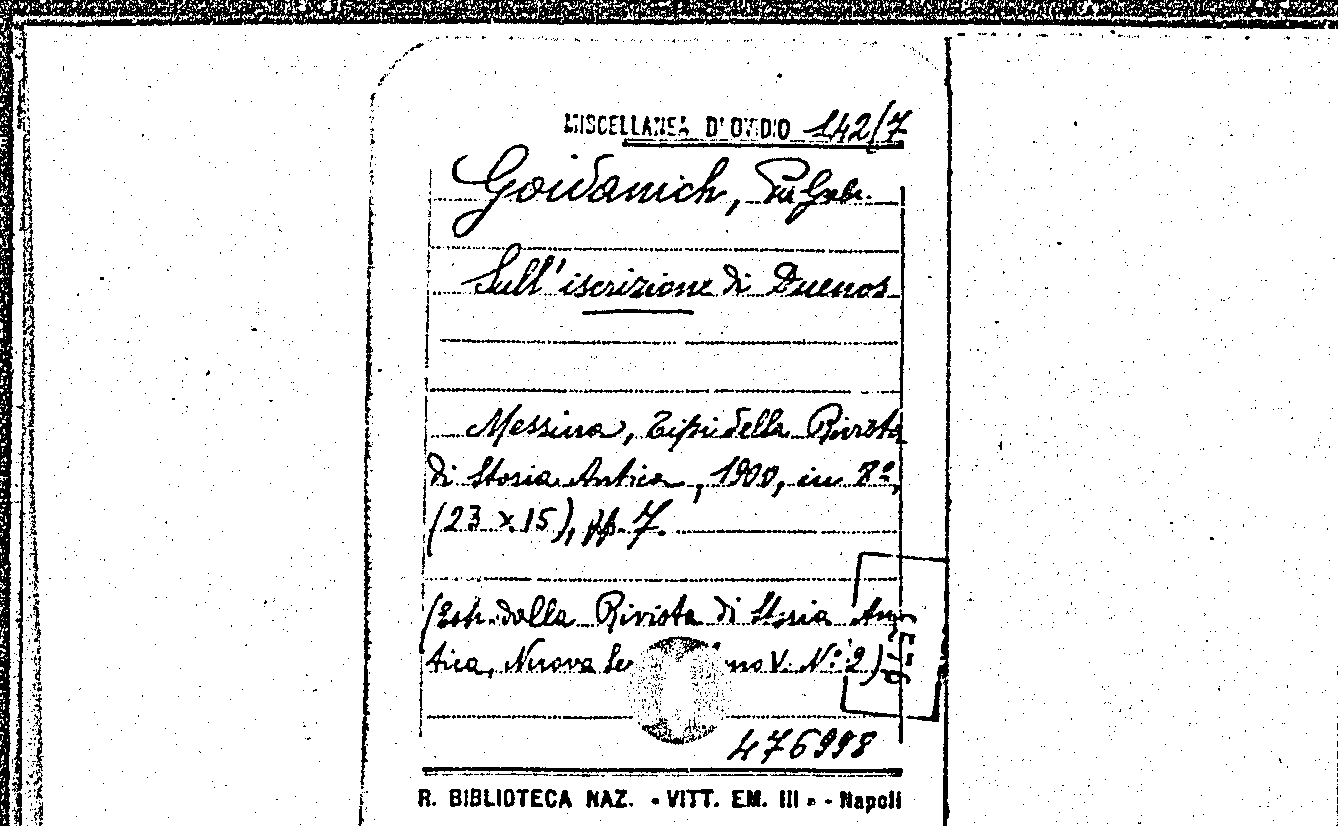 MISCELLANEA D'OVIDIO 142/7
Goidanich, Gabr.
Sull'iscrizione di Duenos
Messina, Tipi della Rivista
di Storia Antica, 1900, in 8º,
(23 x 15), pp. 7.
(Estr. dalla Rivista di Storia An-
tica, Nuova Se no V. Nº 2)
476998
R. BIBLIOTECA NAZ. « VITT. EM. III » - Napoli